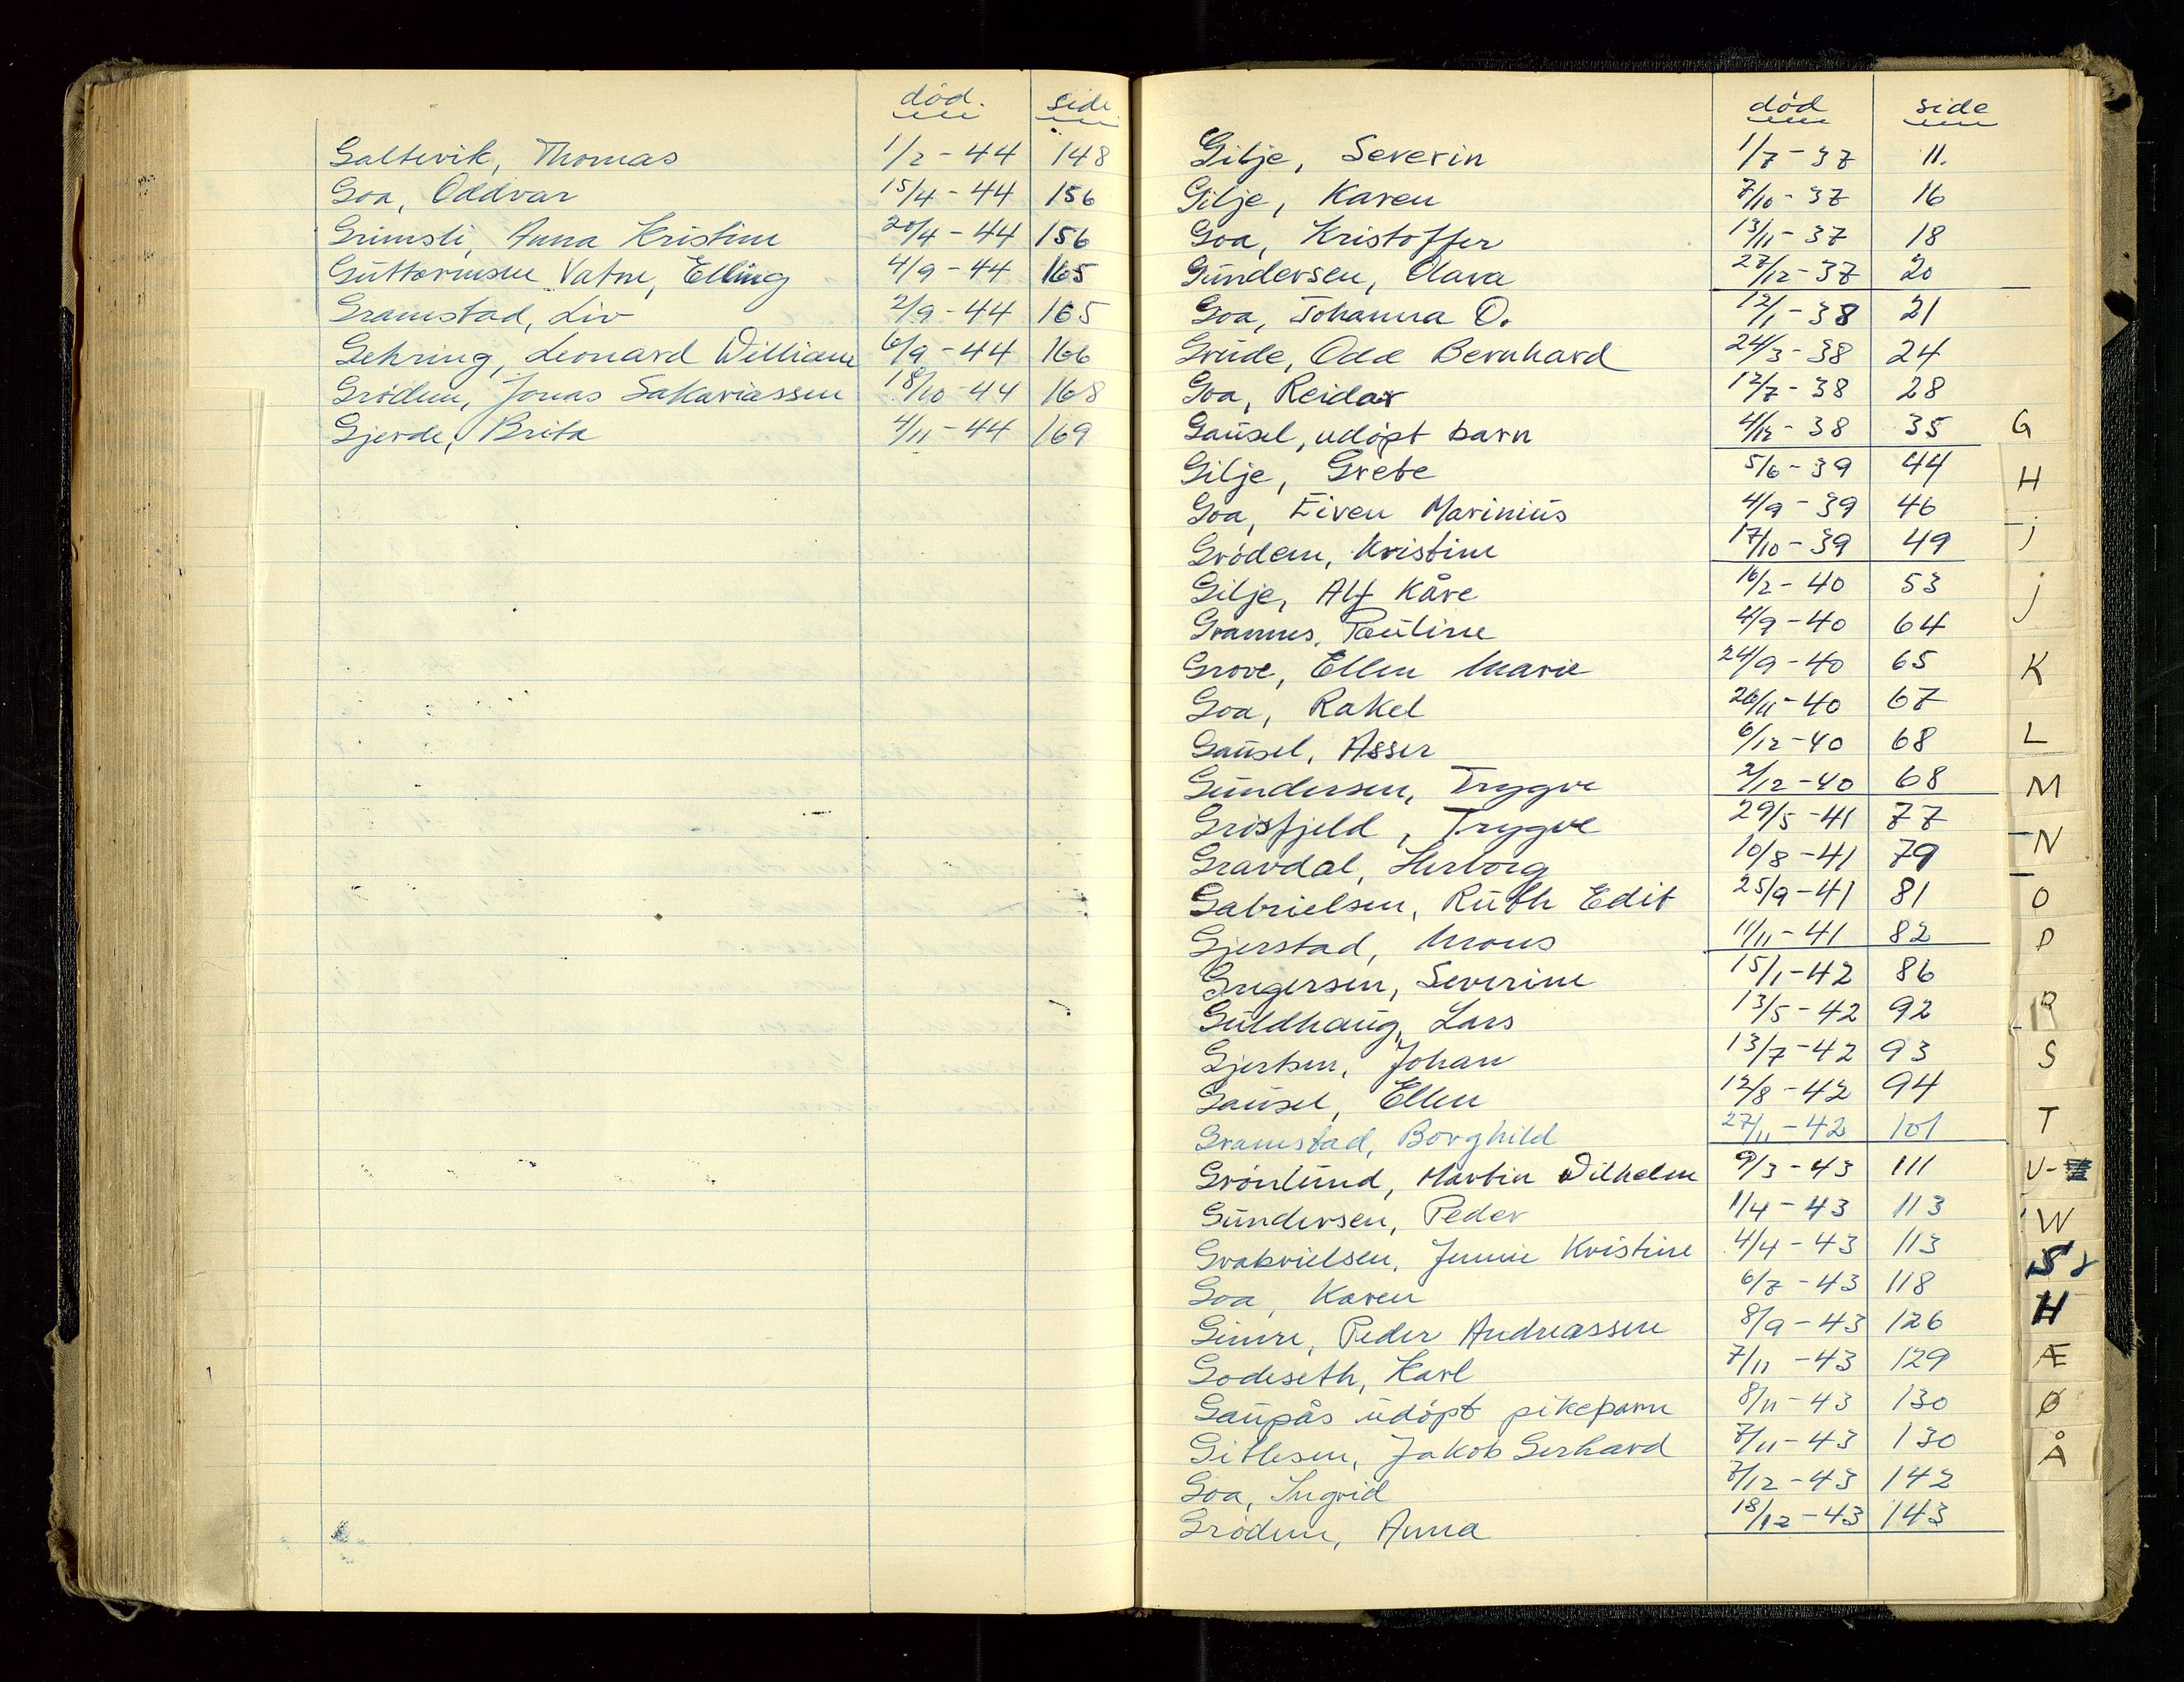 død. side
Galtevik, Thomas 1/2 - 44 148
Goa, Oddvar 15/4 - 44 156
Grimsli, Anna Kristine 20/4 - 44 156
Guttormsen Vatne, Elling 4/9 - 44 165
Gramstad, Liv 2/9 - 44 165
Gehring, Leonard William 6/9 - 44 166
Grödem, Jonas Sakariassen 18/10 - 44 168
Gjerde, Brita 4/11 - 44 169
død side
Gilje, Severin 1/7 - 37 11.
Gilje, Karen 7/10 - 37 16
Goa, Kristoffer 13/11 - 37 18
Gundersen, Olava 27/12 - 37 20
Goa, Johanna O. 12/1 - 38 21
Grude, Odd Bernhard 24/3 - 38 24
Goa, Reidar 12/7 - 38 28
Gausel, udöpt barn 4/12 - 38 35
Gilje, Grete 5/6 - 39 44
Goa, Eiven Marinius 4/9 - 39 46
Grödem, Kristine 17/10 - 39 49
Gilje, Alf Kåre 16/2 - 40 53
Grannes, Pauline 4/9 - 40 64
Grove, Ellen Marie 24/9 - 40 65
Goa, Rakel 26/11 - 40 67
Gausel, Asser 6/12 - 40 68
Gundersen, Trygve 2/12 - 40 68
Grösfjeld, Trygve 29/5 - 41 77
Gravdal, Herborg 10/8 - 41 79
Gabrielsen, Ruth Edit 25/9 - 41 81
Gjerstad, Mons 11/11 - 41 82
Gregersen, Severine 15/1 - 42 86
Guldhaug, Lars 13/5 - 42 92
Gjertsen, Johan 13/7 - 42 93
Gausel, Ellen 12/8 - 42 94
Gramstad, Borghild 27/11 - 42 101
Grönlund, Martin Wilhelm 9/3 - 43 111
Gundersen, Peder 1/4 - 43 113
Grabrielsen, Jennie Kristine 4/4 - 43 113
Goa, Karen 6/7 - 43 118
Gimre, Peder Andreassen 8/9 - 43 126
Godeseth, Karl 7/11 - 43 129
Gaupås udöpt pikebarn 8/11 - 43 130
Gitlesen, Jakob Gerhard 7/11 - 43 130
Goa, Ingrid 7/12 - 43 142
Grödem, Anna 18/12 - 43 143
G
H
j
j
K
L
M
N
O
P
R
S
T
U-
W
H
Æ
Ø
Å